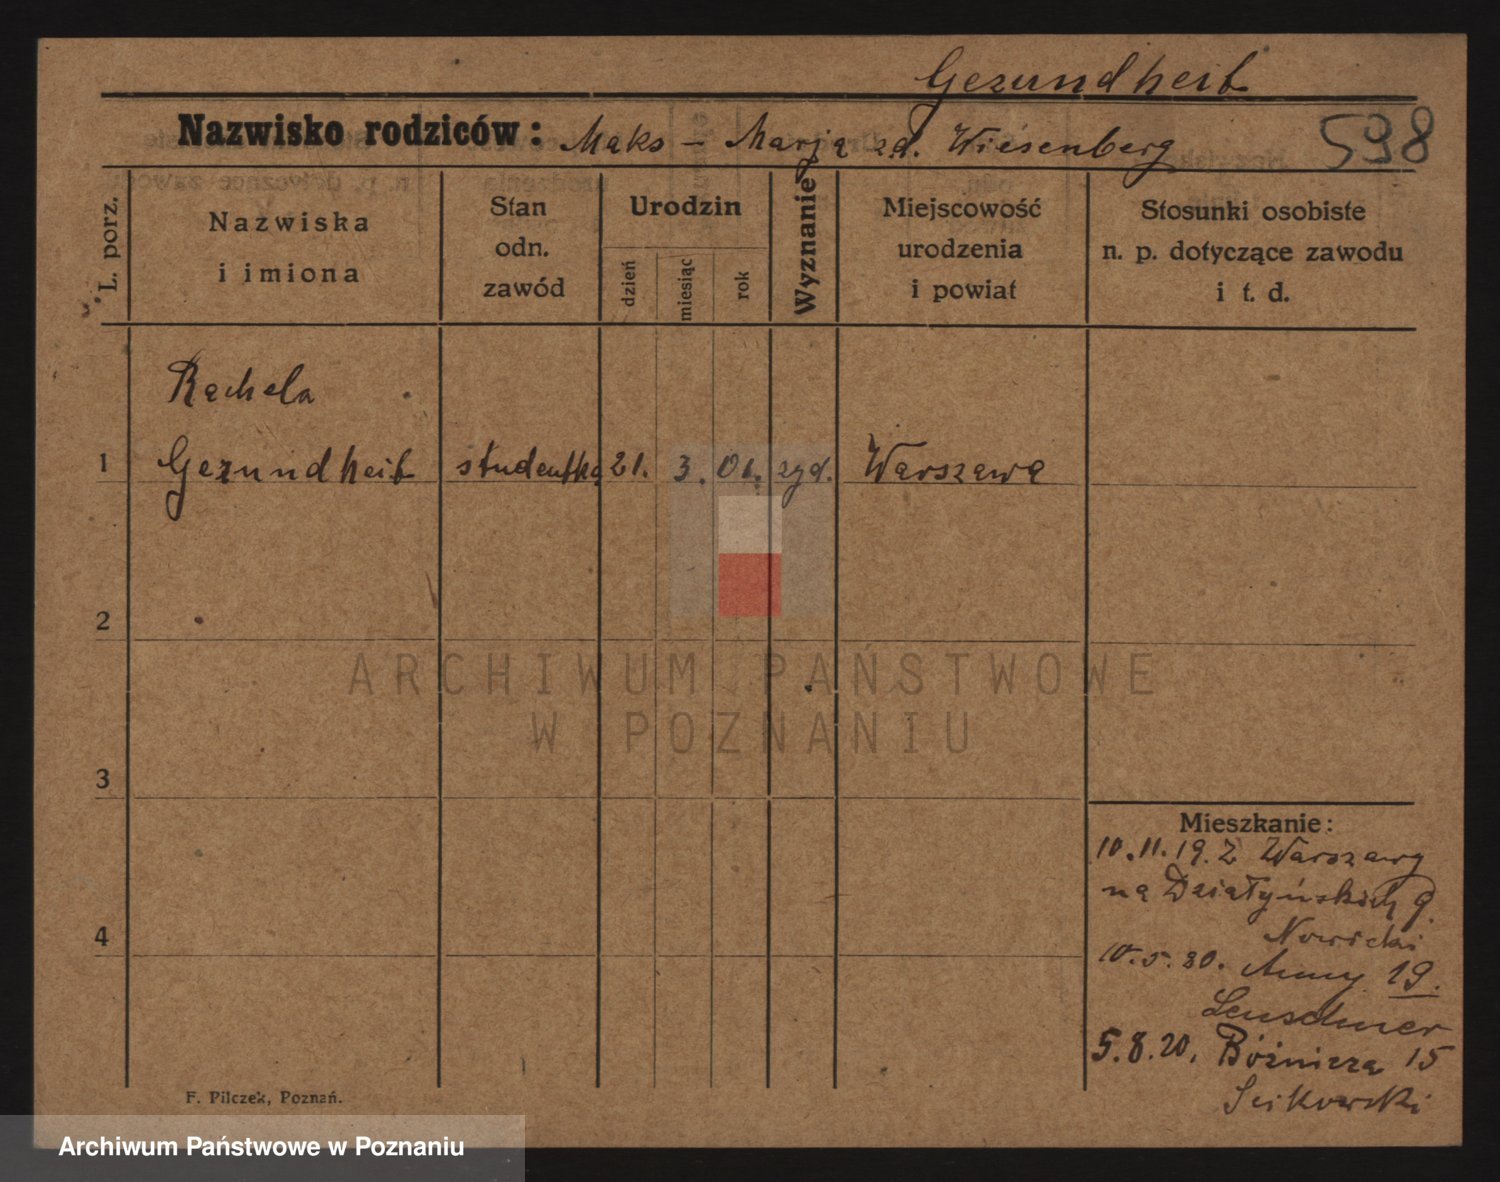 Gezundheit
Nazwisko rodziców: Maks - Marja zd. Wiesenberg 598
L. porz.
Nazwiska
i imiona
Stan
odn.
zawód
Urodzin
dzień
miesiąc
rok
Wyznanie
Miejscowość
urodzenia
i powiat
Stosunki osobiste
n. p. dotyczące zawodu
i t. d.
Rachela
1 Gezundheit studentka 21. 3. 01. zyd. Warszawa
2
3
4
Mieszkanie:
10.11.19. Z Warszawy
na Działyńskich 9.
Nowicki
10.5.20. Anny 19.
Leuschner
5.8.20. Bóżnicza 15
F. Pilczek, Poznań.
ARCHIWUM PAŃSTWOWE
W POZNANIU
Archiwum Państwowe w Poznaniu